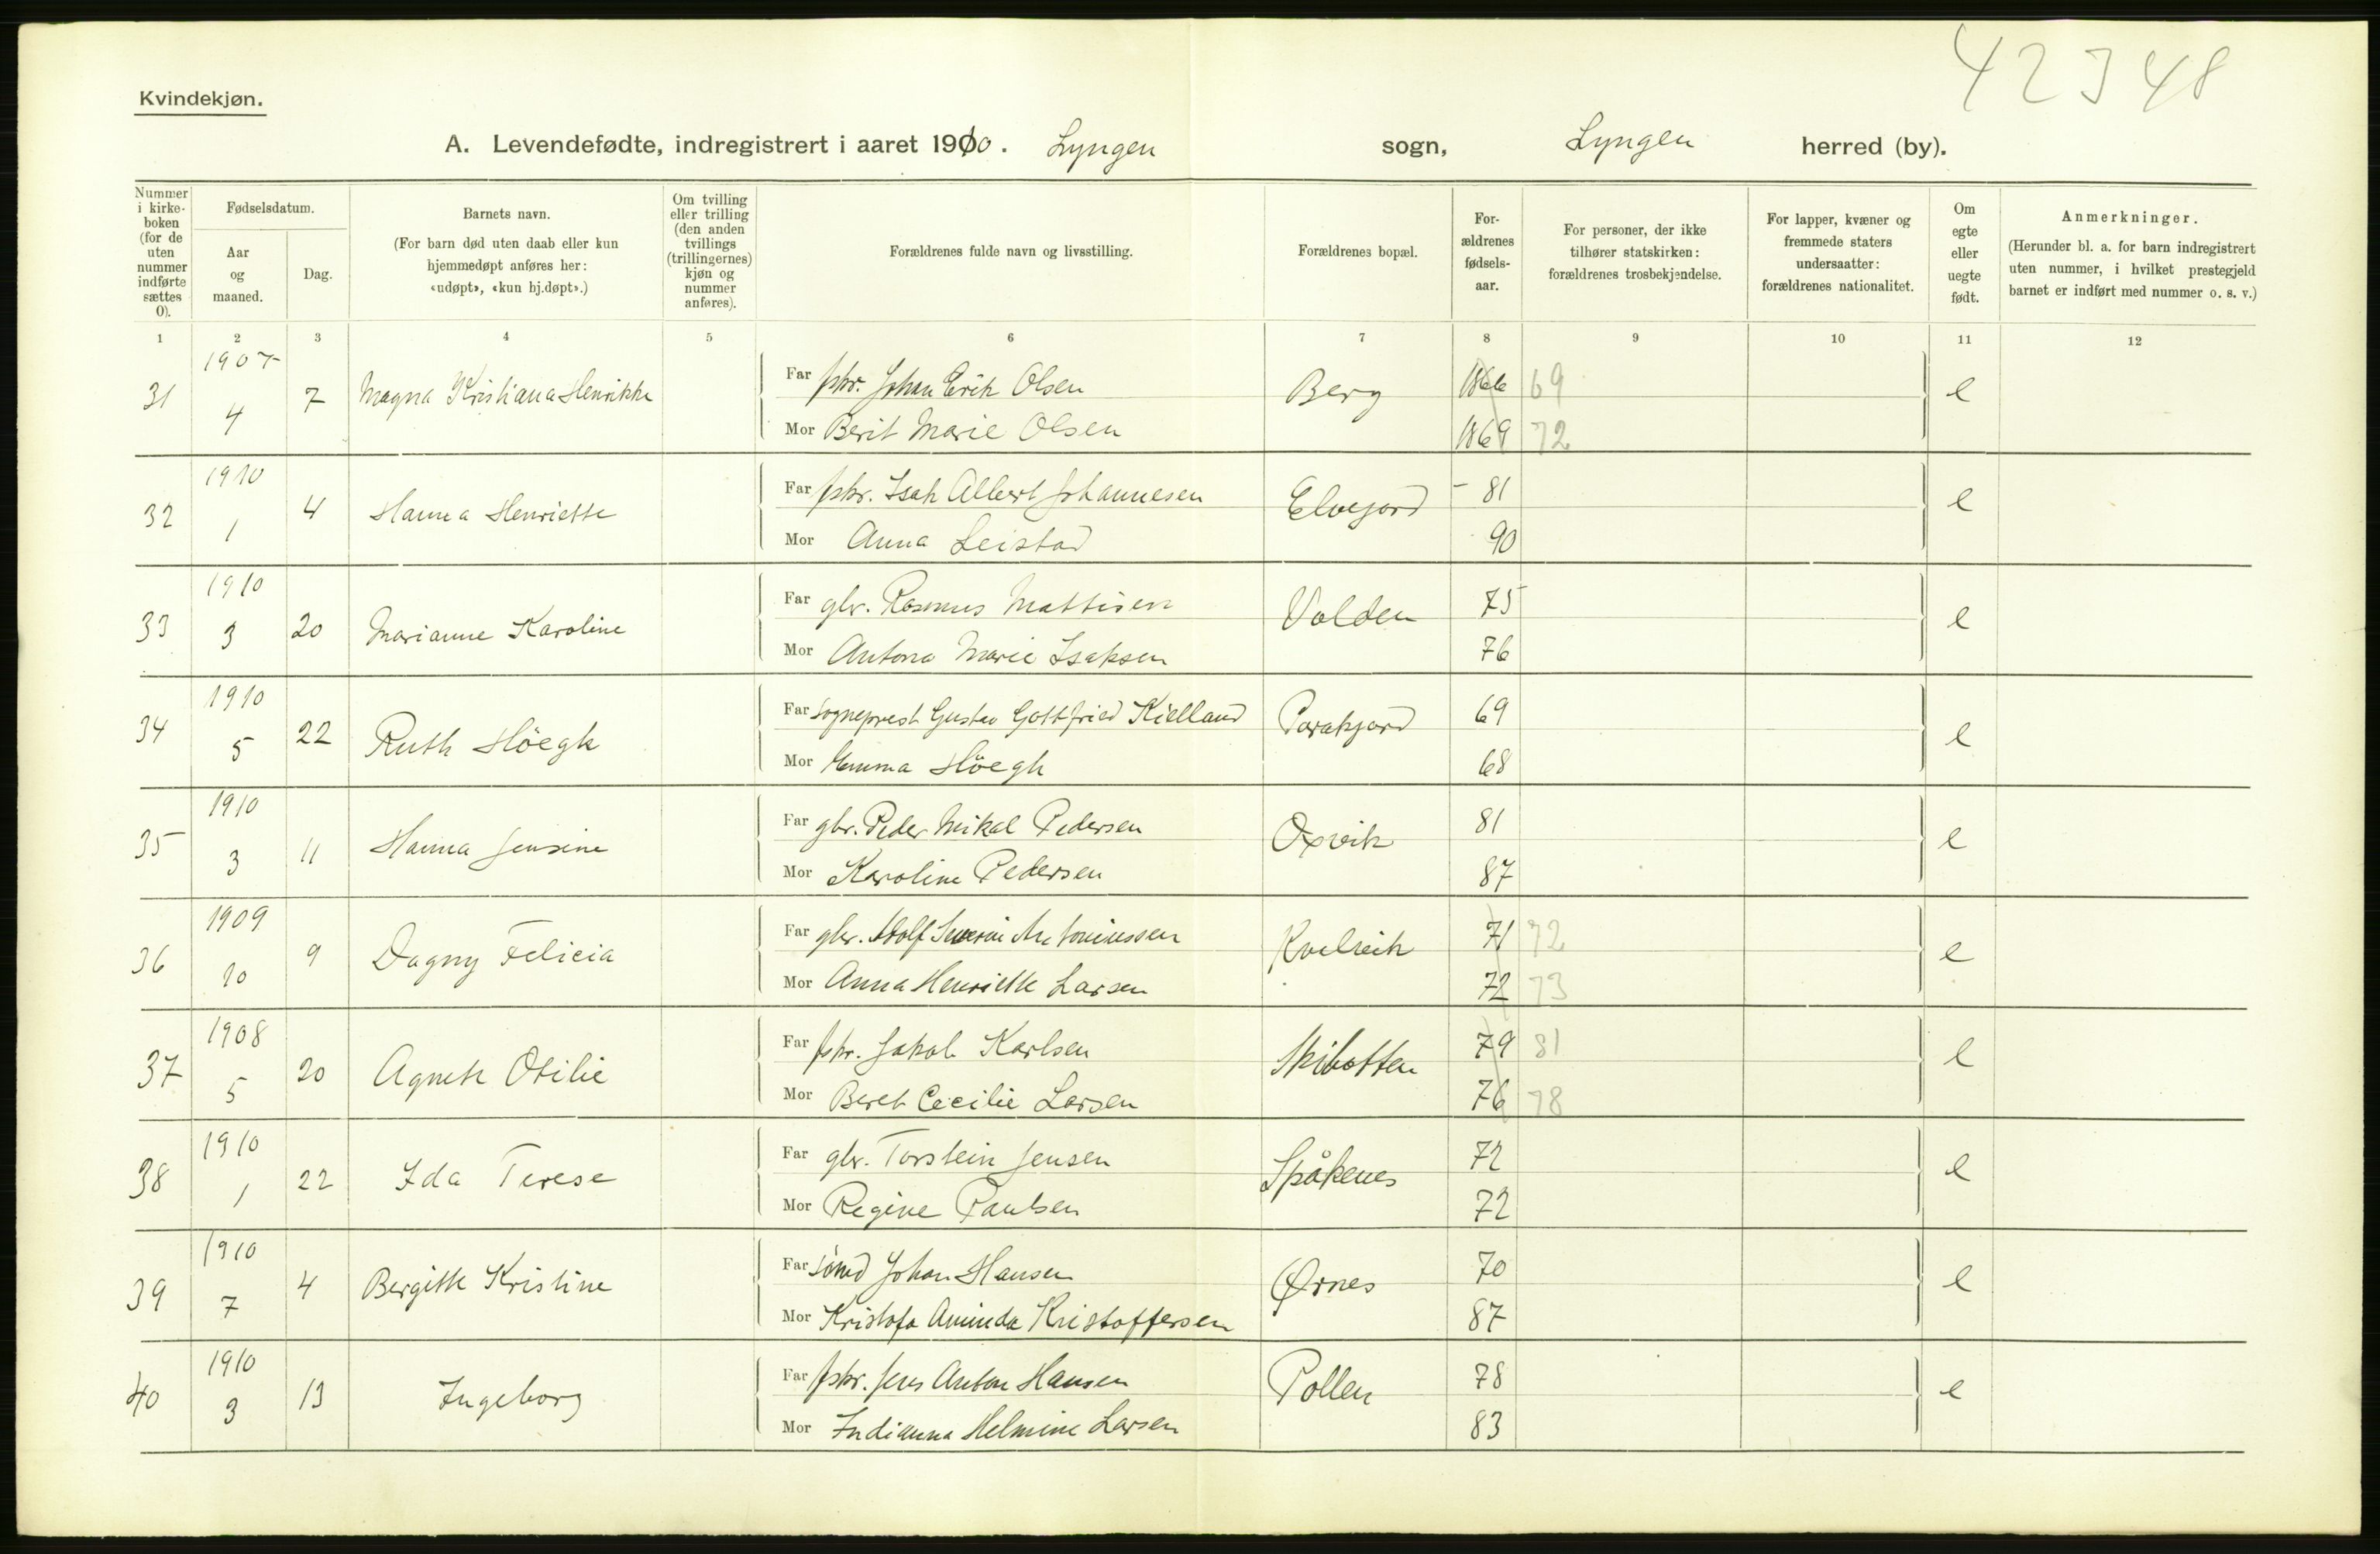 42348
Kvindekjøn.
A. Levendefødte, indregistrert i aaret 1910. Lyngen sogn, Lyngen herred (by).
Nummer i kirke-boken (for de uten nummer indførte sættes 0).
Fødselsdatum.
Aar og maaned.
Dag.
Barnets navn.
(For barn død uten daab eller kun hjemmedøpt anføres her: «udøpt», «kun hj.døpt».)
Om tvilling eller trilling (den anden tvillings (trillingernes) kjøn og nummer anføres).
Forældrenes fulde navn og livsstilling.
Forældrenes bopæl.
For-ældrenes fødsels-aar.
For personer, der ikke tilhører statskirken: forældrenes trosbekjendelse.
For lapper, kvæner og fremmede staters undersaatter: forældrenes nationalitet.
Om egte eller uegte født.
Anmerkninger.
(Herunder bl. a. for barn indregistrert uten nummer, i hvilket prestegjeld barnet er indført med nummer o. s. v.)
1 2 3 4 5 6 7 8 9 10 11 12
31 1907 4 7 Magna Kristiana Henrikke Far fskr. Johan Erik Olsen Berg 1866 69 e
Mor Berit Marie Olsen 1869 72
32 1910 1 4 Hanna Henriette Far fskr. Isak Albert Johannesen Elvejord - 81 e
Mor Anna Leistad 90
33 1910 3 20 Marianne Karoline Far gbr. Rasmus Mattisen Volden 75 e
Mor Antona Marie Isaksen 76
34 1910 5 22 Ruth Höegh Far Sogneprest Gustav Gottfried Kielland Parakjord 69 e
Mor Emma Höegh 68
35 1910 3 11 Hanna Jensine Far gbr. Peder Mikal Pedersen Oxvik 81 e
Mor Karoline Pedersen 87
36 1909 10 9 Dagny Felicia Far gbr. Adolf Severin Antoniussen Kvelvik 71 72 e
Mor Anna Henriette Larsen 72 73
37 1908 5 20 Agnete Otilie Far fskr. Jakob Karlsen Skibotten 79 81 e
Mor Beret Cecilie Larsen 76 78
38 1910 1 22 Ida Terese Far gbr. Torstein Jensen Spåkenes 72 e
Mor Regine Paulsen 72
39 1910 7 4 Bergitte Kristine Far sömd Johan Hansen Ørnes 70 e
Mor Kristofa Aminda Kristoffersen 87
40 1910 3 13 Ingeborg Far fskr. Jens Anton Hansen Pollen 78 e
Mor Indianna Helmine Larsen 83